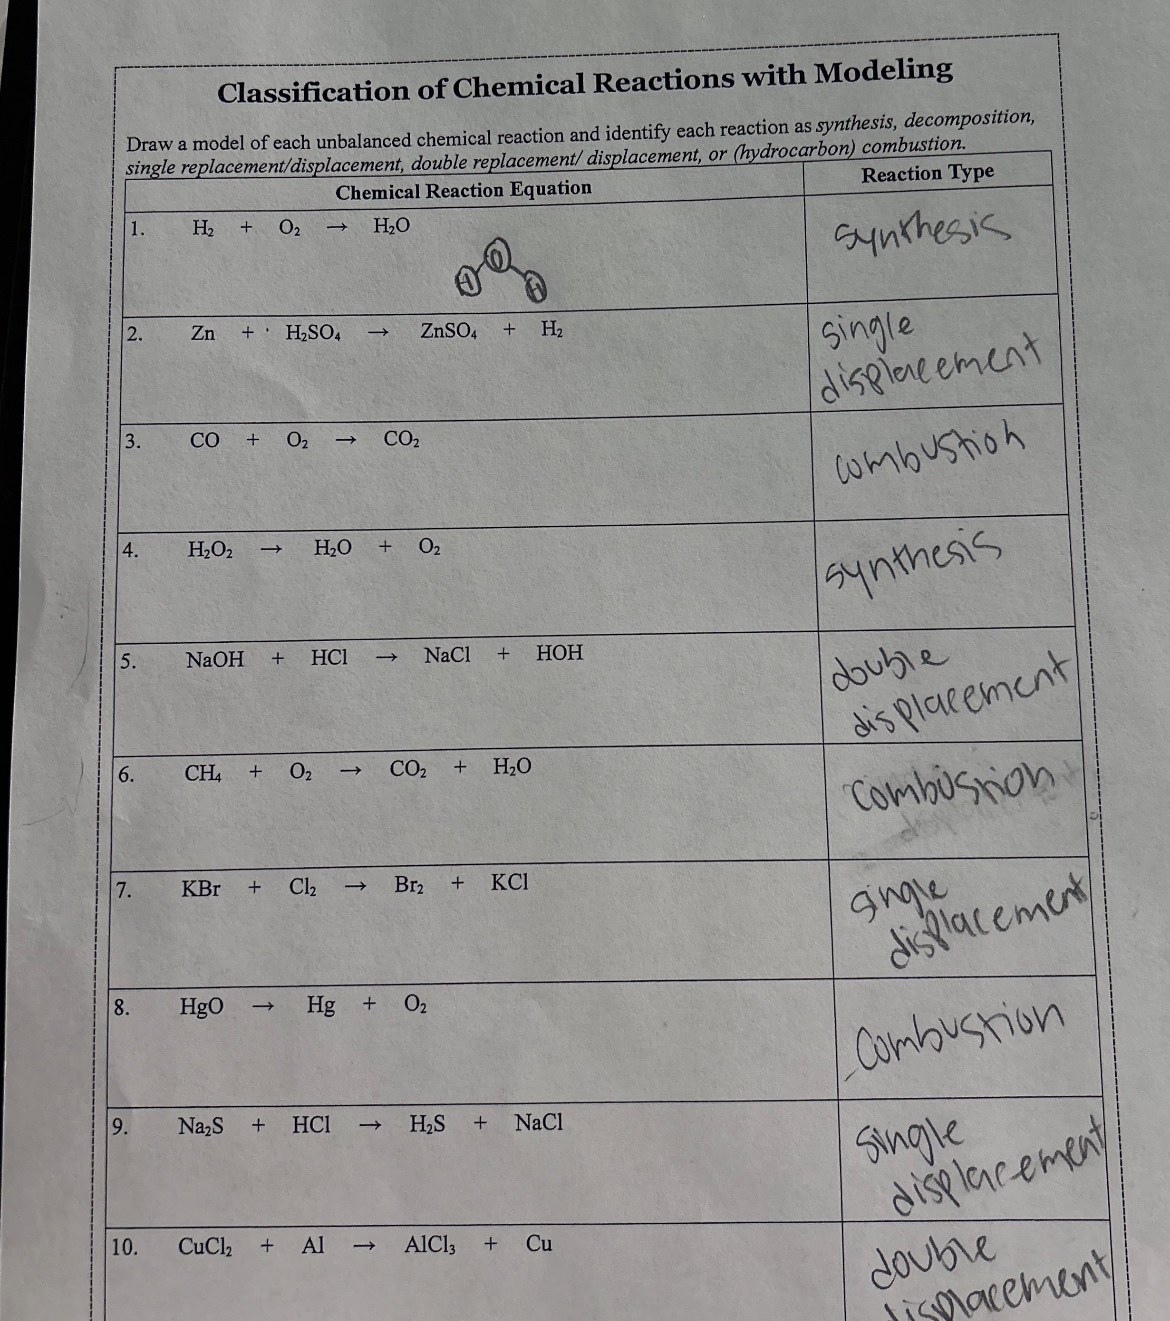 Classification of Chemical Reactions with Modeling
Draw a model of each unbalanced chemical reaction and identify each reaction as synthesis, decomposition,
single replacement/displacement, double replacement/ displacement, or (hydrocarbon) combustion.
Chemical Reaction Equation Reaction Type
1. H₂ + O₂ → H₂O synthesis
O
H H
2. Zn + H₂SO₄ → ZnSO₄ + H₂ single
displacement
3. CO + O₂ → CO₂ combustion
4. H₂O₂ → H₂O + O₂ synthesis
5. NaOH + HCl → NaCl + HOH double
displacement
6. CH₄ + O₂ → CO₂ + H₂O combustion
7. KBr + Cl₂ → Br₂ + KCl single
displacement
8. HgO → Hg + O₂ combustion
9. Na₂S + HCl → H₂S + NaCl single
displacement
10. CuCl₂ + Al → AlCl₃ + Cu double
displacement